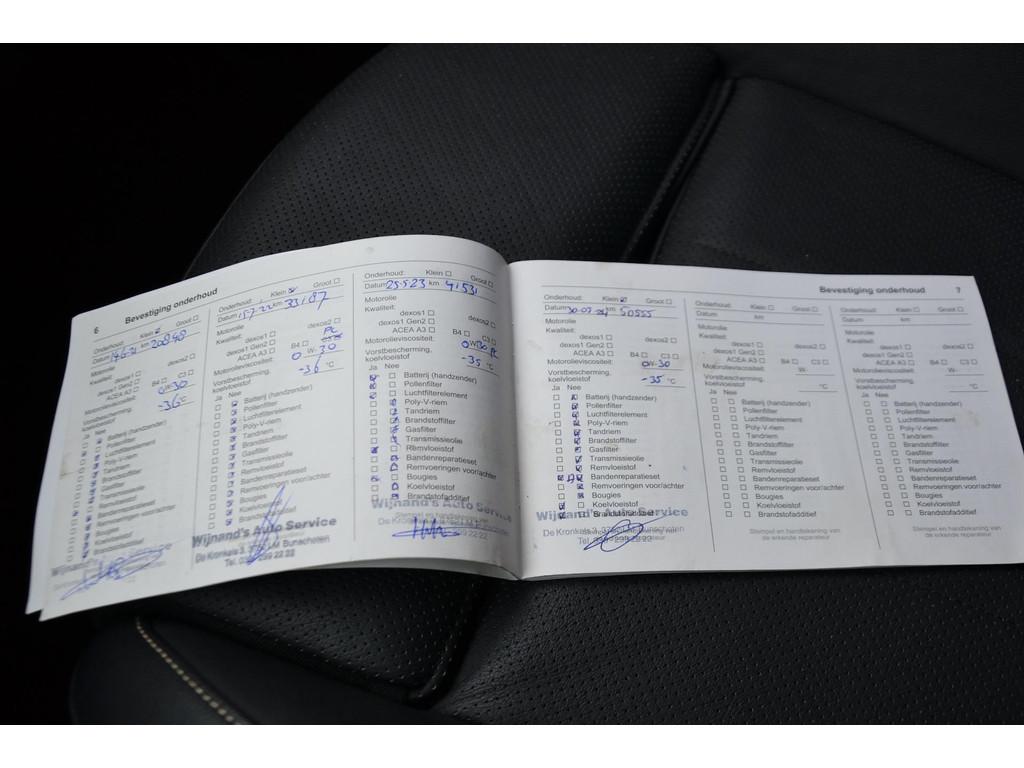 6 Bevestiging onderhoud
Onderhoud: Klein ☑ Groot ☐
Datum 14-6-21 km 20848
Motorolie
Kwaliteit: dexos1 ☐ dexos2 ☐
dexos1 Gen2 ☐
ACEA A3 ☐ B4 ☐ C3 ☐
Motorolieviscositeit: 0W-30
Vorstbescherming, koelvloeistof -36 °C
Ja Nee
Batterij (handzender)
Pollenfilter
Luchtfilterelement
Poly-V-riem
Tandriem
Brandstoffilter
Gasfilter
Transmissieolie
Remvloeistof
Bandenreparatieset
Remvoeringen voor/achter
Bougies
Koelvloeistof
Brandstofadditief
Wijnand's Auto Service
Onderhoud: Klein ☑ Groot ☐
Datum 15-7-22 km 33187
Motorolie
Kwaliteit: dexos1 ☐ dexos2 ☐
dexos1 Gen2 ☐
ACEA A3 ☐
Motorolieviscositeit: 0 W-30
Vorstbescherming, koelvloeistof -36 °C
Ja Nee
Batterij (handzender)
Pollenfilter
Luchtfilterelement
Poly-V-riem
Tandriem
Brandstoffilter
Gasfilter
Transmissieolie
Remvloeistof
Bandenreparatieset
Remvoeringen voor/achter
Bougies
Koelvloeistof
Brandstofadditief
Wijnand's Auto Service
De Kronkels 3, Bunschoten
Onderhoud: Klein ☐ Groot ☐
Datum 25-5-23 km 41531
Motorolie
Kwaliteit:
dexos1 ☐ dexos2 ☐
dexos1 Gen2 ☐
ACEA A3 ☐ B4 ☐ C3 ☐
Motorolieviscositeit: 0W30
Vorstbescherming, koelvloeistof -35 °C
Ja Nee
Batterij (handzender)
Pollenfilter
Luchtfilterelement
Poly-V-riem
Tandriem
Brandstoffilter
Gasfilter
Transmissieolie
Remvloeistof
Bandenreparatieset
Remvoeringen voor/achter
Bougies
Koelvloeistof
Brandstofadditief
Wijnand's Auto Service
De Kronkels
Bevestiging onderhoud 7
Onderhoud: Klein ☑ Groot ☐
Datum km 50555
Motorolie
Kwaliteit:
dexos1 ☐ dexos2 ☐
dexos1 Gen2 ☐
ACEA A3 ☐ B4 ☐ C3 ☐
Motorolieviscositeit: 0W-30
Vorstbescherming,
koelvloeistof -35 °C
Ja Nee
Batterij (handzender)
Pollenfilter
Luchtfilterelement
Poly-V-riem
Tandriem
Brandstoffilter
Gasfilter
Transmissieolie
Remvloeistof
Bandenreparatieset
Remvoeringen voor/achter
Bougies
Koelvloeistof
Brandstofadditief
Wijnand's Auto Service
De Kronkels 3, Bunschoten
Onderhoud: Klein ☐ Groot ☐
Datum km
Motorolie
Kwaliteit:
dexos1 ☐ dexos2 ☐
dexos1 Gen2 ☐
ACEA A3 ☐ B4 ☐ C3 ☐
Motorolieviscositeit: W-
Vorstbescherming,
koelvloeistof °C
Ja Nee
☐ ☐ Batterij (handzender)
☐ ☐ Pollenfilter
☐ ☐ Luchtfilterelement
☐ ☐ Poly-V-riem
☐ ☐ Tandriem
☐ ☐ Brandstoffilter
☐ ☐ Gasfilter
☐ ☐ Transmissieolie
☐ ☐ Remvloeistof
☐ ☐ Bandenreparatieset
☐ ☐ Remvoeringen voor/achter
☐ ☐ Bougies
☐ ☐ Koelvloeistof
☐ ☐ Brandstofadditief
Stempel en handtekening van
de erkende reparateur
Onderhoud: Klein ☐ Groot ☐
Datum km
Motorolie
Kwaliteit:
dexos1 ☐ dexos2 ☐
dexos1 Gen2 ☐
ACEA A3 ☐ B4 ☐ C3 ☐
Motorolieviscositeit: W-
Vorstbescherming,
koelvloeistof °C
Ja Nee
☐ ☐ Batterij (handzender)
☐ ☐ Pollenfilter
☐ ☐ Luchtfilterelement
☐ ☐ Poly-V-riem
☐ ☐ Tandriem
☐ ☐ Brandstoffilter
☐ ☐ Gasfilter
☐ ☐ Transmissieolie
☐ ☐ Remvloeistof
☐ ☐ Bandenreparatieset
☐ ☐ Remvoeringen voor/achter
☐ ☐ Bougies
☐ ☐ Koelvloeistof
☐ ☐ Brandstofadditief
Stempel en handtekening van
de erkende reparateur